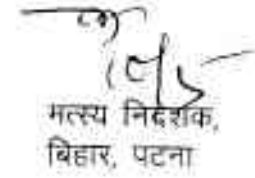 मत्स्य निदेशक,
बिहार, पटना